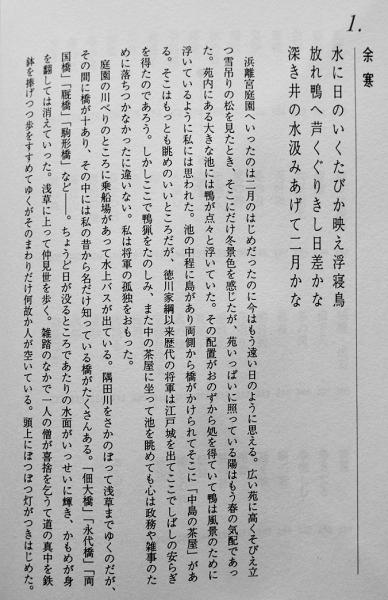 1.
余寒
水に日のいくたびか映え浮寝鳥
放れ鴨へ芦くぐりきし日差かな
深き井の水汲みあげて二月かな
浜離宮庭園へいったのは二月のはじめだったのに今はもう遠い日のように思える。広い苑に高くそびえ立
つ雪吊りの松を見たとき、そこにだけ冬景色を感じたが、苑いっぱいに照っている陽はもう春の気配であっ
た。苑内にある大きな池には鴨が点々と浮いていた。その配置がおのずから処を得ていて鴨は風景のために
浮いているように私には思われた。池の中程に島があり両側から橋がかけられてそこに「中島の茶屋」があ
る。そこはもっとも眺めのいいところだが、徳川家綱以来歴代の将軍は江戸城を出てここでしばしの安らぎ
を得たのであろう。しかしここで鴨猟をたのしみ、また中の茶屋に坐って池を眺めても心は政務や雑事のた
めに落ちつかなかったに違いない。私は将軍の孤独をおもった。
庭園の川べりのところに乗船場があって水上バスが出ている。隅田川をさかのぼって浅草までゆくのだが、
その間に橋が十あり、その中には私の昔から名だけ知っている橋がたくさんある。「佃大橋」「永代橋」「両
国橋」「厩橋」「駒形橋」など――。ちょうど日が没るところであたりの水面がいっせいに輝き、かもめが身
を翻しては消えていった。浅草に上って仲見世を歩く。雑踏のなかで一人の僧が喜捨を乞うて道の真中を鉄
鉢を捧げつつ歩をすすめてゆくがそのまわりだけ何故か人が空いている。頭上にぽつぽつ灯がつきはじめた。